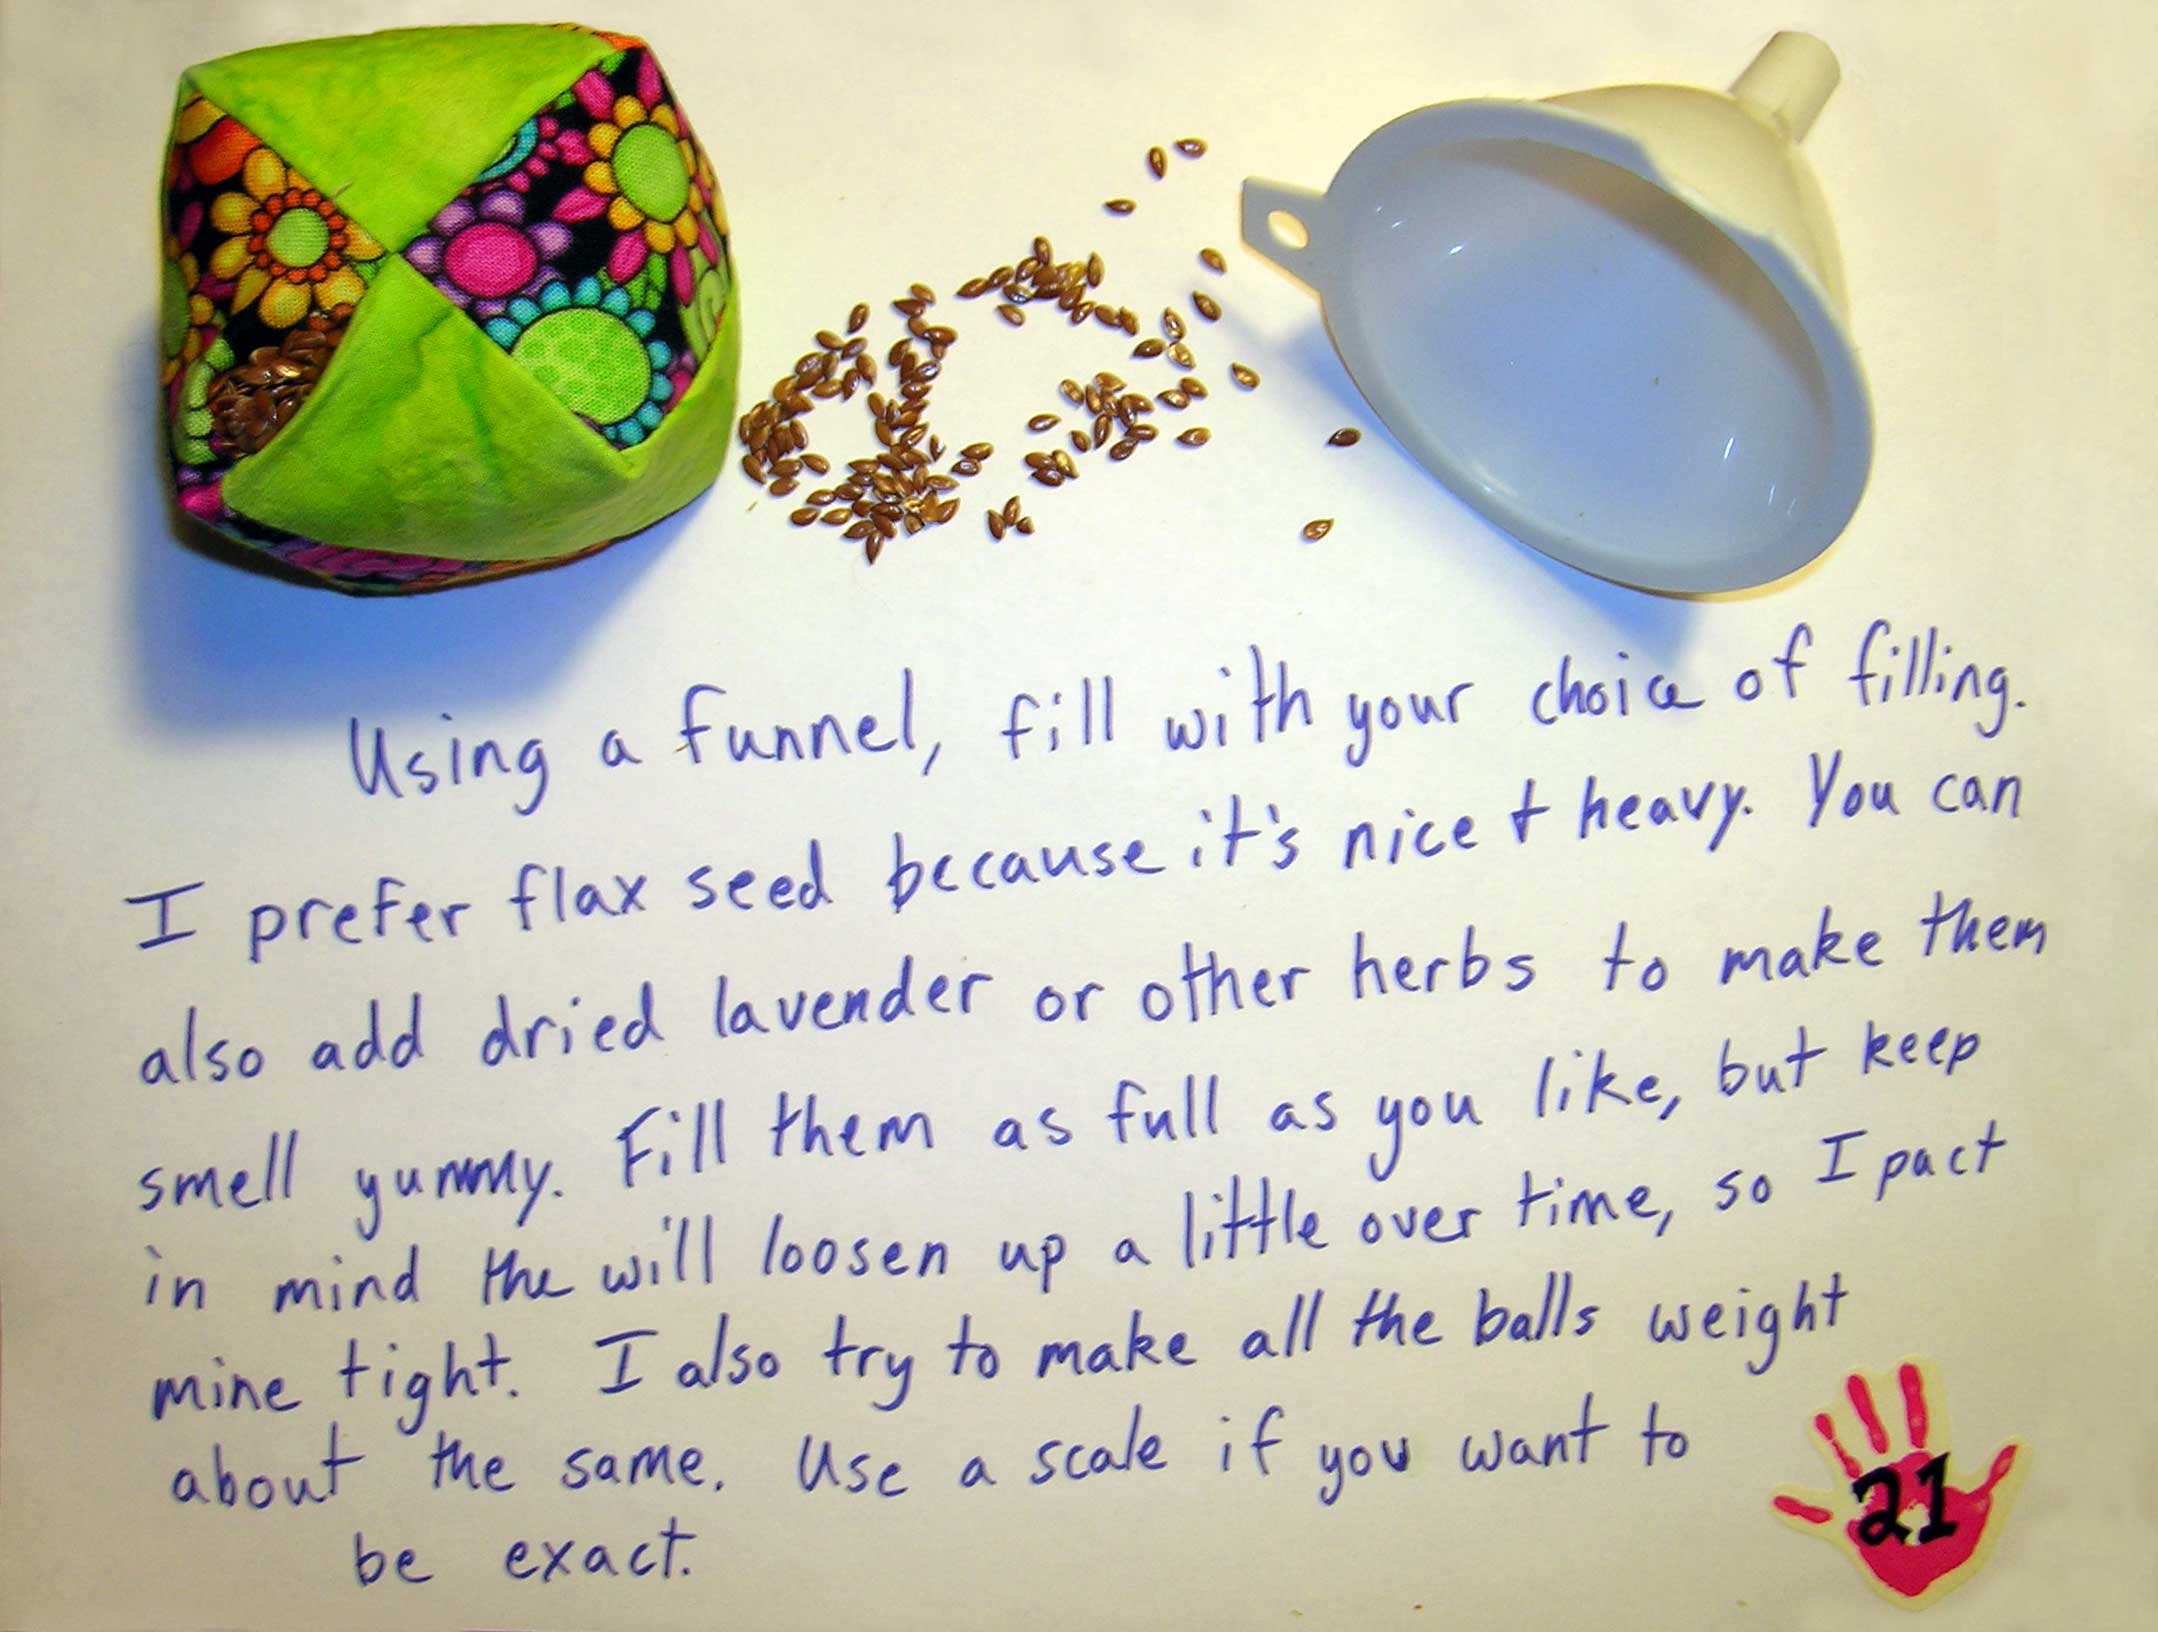 Using a funnel, fill with your choice of filling.
I prefer flax seed because it's nice + heavy. You can
also add dried lavender or other herbs to make them
smell yummy. Fill them as full as you like, but keep
in mind the will loosen up a little over time, so I pact
mine tight. I also try to make all the balls weight
about the same. Use a scale if you want to
be exact.
21